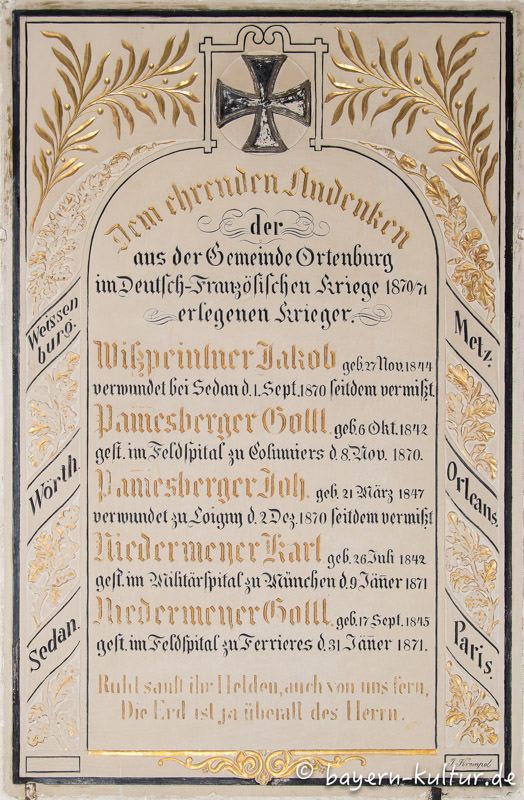 Dem ehrenden Andenken
der
aus der Gemeinde Ortenburg
im Deutsch-Französischen Kriege 1870/71
erlegenen Krieger.
Wißpeintner Jakob geb. 27 Nov. 1844
verwundet bei Sedan d. 1. Sept. 1870 seitdem vermißt.
Pamesberger Gottl. geb. 6 Okt. 1842
gest. im Feldspital zu Columiers d. 8. Nov. 1870.
Pamesberger Joh. geb. 21 März 1847
verwundet zu Loigny d. 2 Dez. 1870 seitdem vermißt
Niedermeyer Karl geb. 26 Juli 1842
gest. im Militärspital zu München d. 9 Jän̄er 1871
Niedermeyer Gottl. geb. 17 Sept. 1845
gest. im Feldspital zu Ferrieres d. 31 Jän̄er 1871.
Ruht sanft ihr Helden, auch von uns fern,
Die Erd ist ja überall des Herrn.
Weissen
burg.
Wörth.
Sedan.
Metz.
Orleans.
Paris.
J. Krempel
© bayern-kultur.de